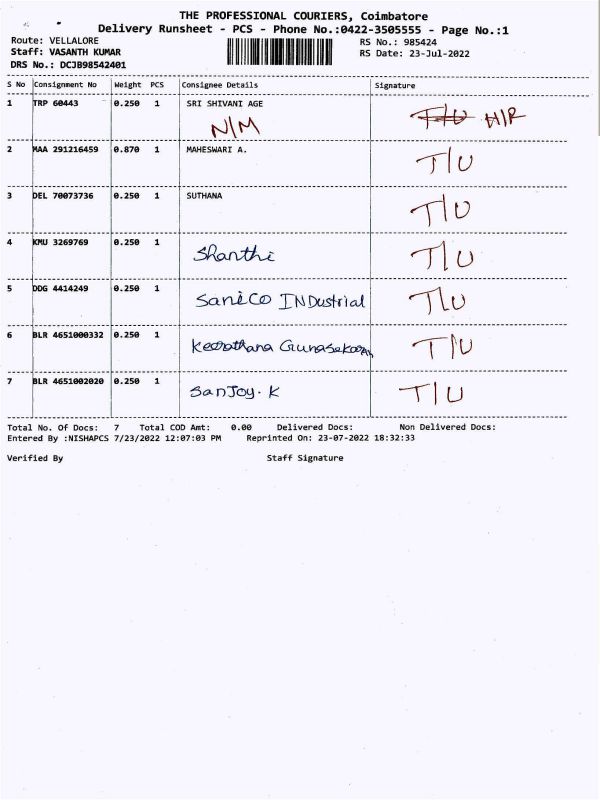 THE PROFESSIONAL COURIERS, Coimbatore
Delivery Runsheet - PCS - Phone No.:0422-3505555 - Page No.:1
Route: VELLALORE RS No.: 985424
Staff: VASANTH KUMAR RS Date: 23-Jul-2022
DRS No.: DCJB98542401
S No Consignment No Weight PCS Consignee Details Signature
1 TRP 60443 0.250 1 SRI SHIVANI AGE
N/M T/U H/R
2 MAA 291216459 0.870 1 MAHESWARI A. T/U
3 DEL 70073736 0.250 1 SUTHANA T/U
4 KMU 3269769 0.250 1 Shanthi T/U
5 DDG 4414249 0.250 1 Sanico INDustrial T/U
6 BLR 4651000332 0.250 1 Keerathana Gunasekaran T/U
7 BLR 4651002020 0.250 1 SanJoy. K T/U
Total No. Of Docs: 7 Total COD Amt: 0.00 Delivered Docs: Non Delivered Docs:
Entered By :NISHAPCS 7/23/2022 12:07:03 PM Reprinted On: 23-07-2022 18:32:33
Verified By Staff Signature